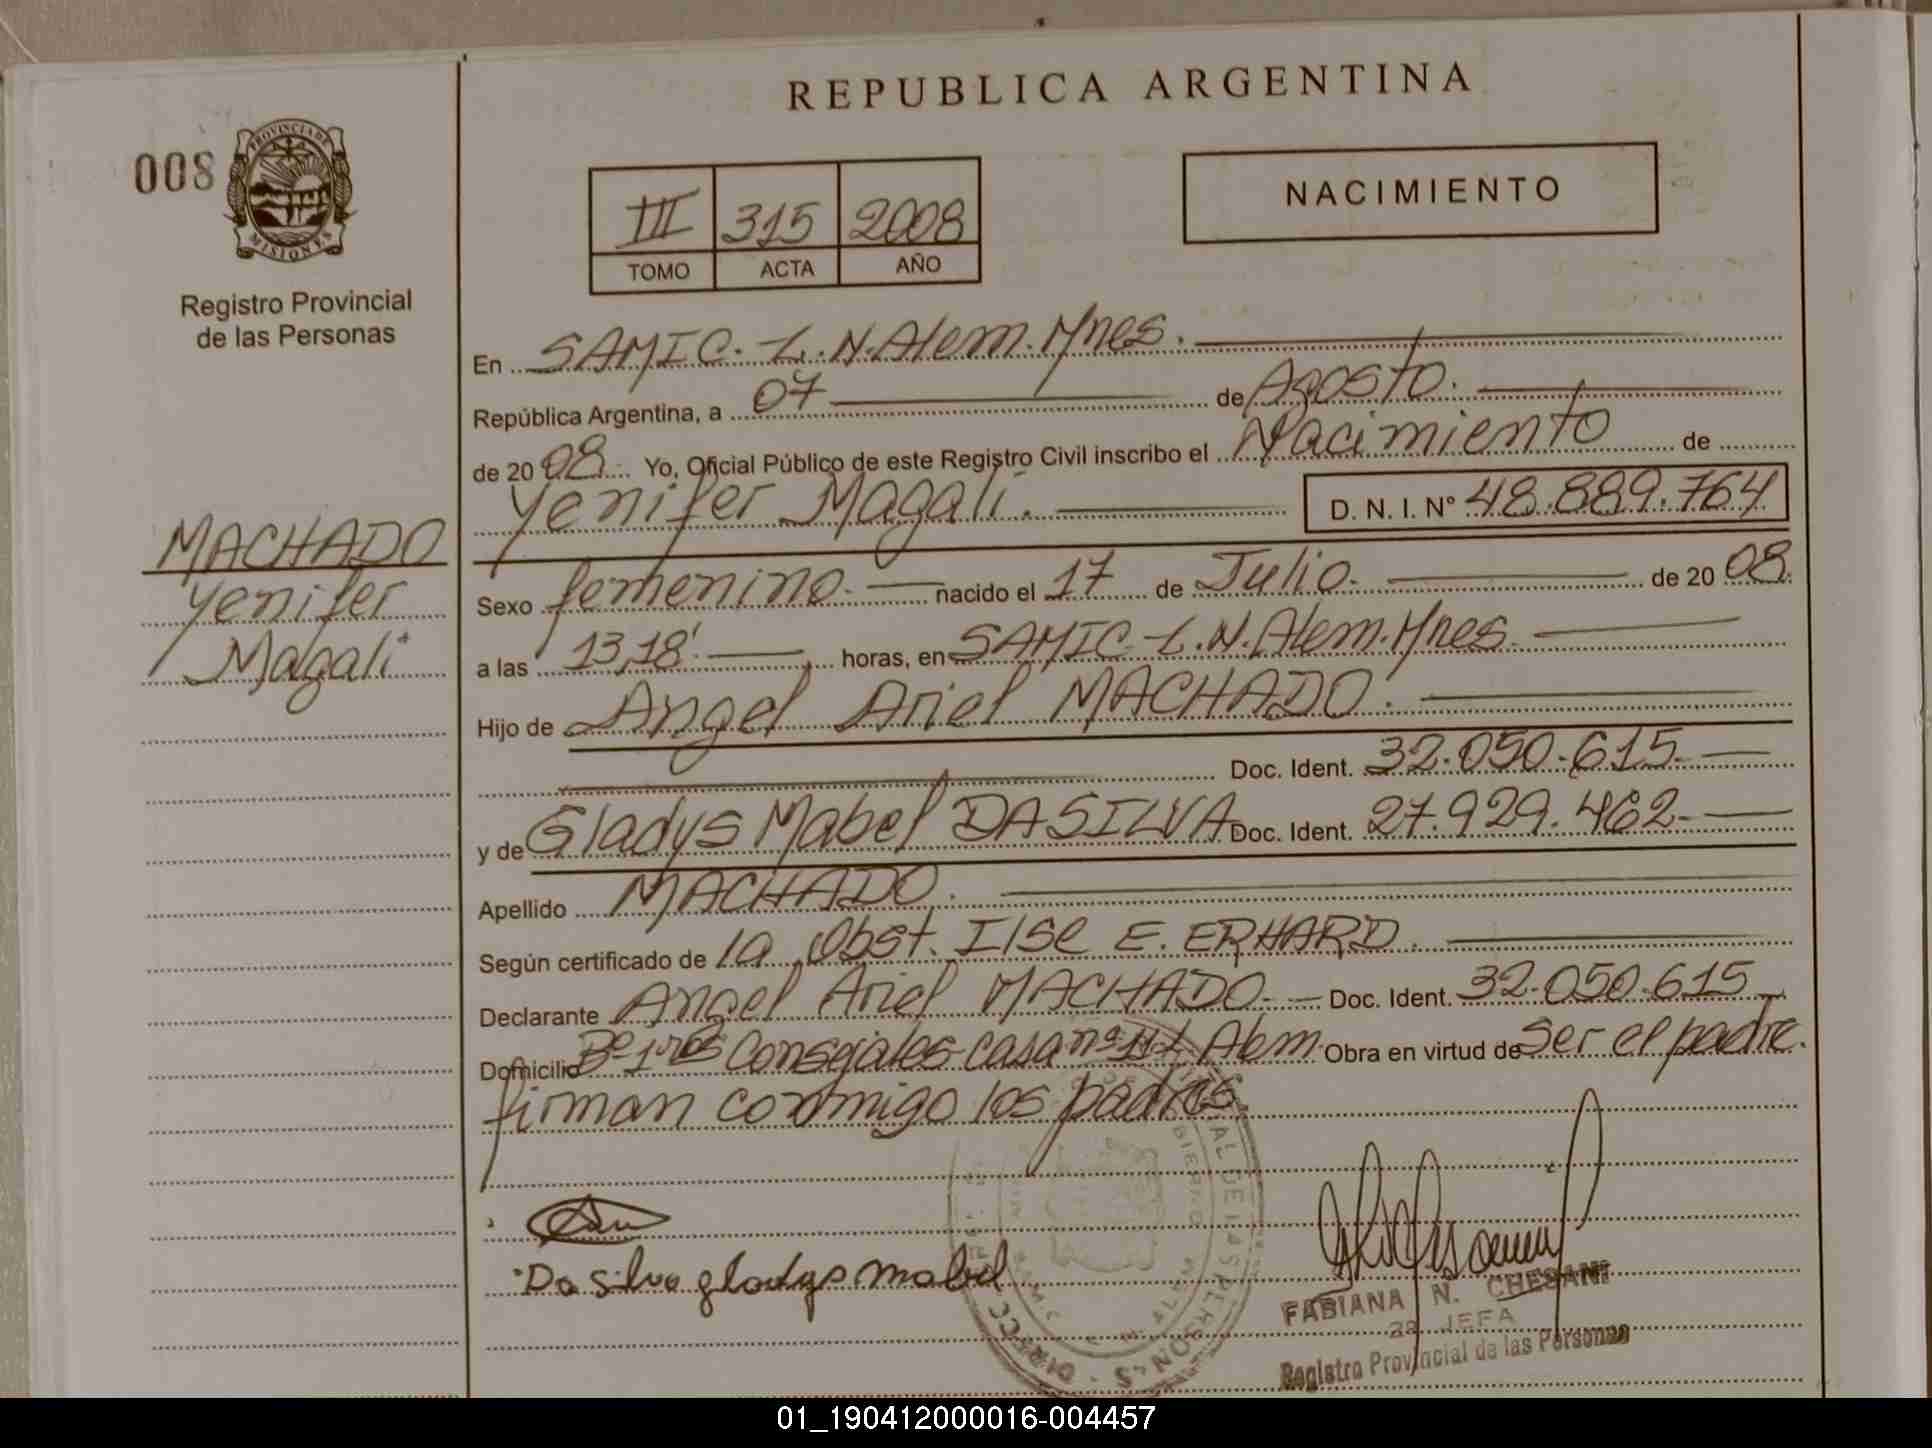 REPUBLICA ARGENTINA
008
PROVINCIA DE
MISIONES
Registro Provincial
de las Personas
III 315 2008
TOMO ACTA AÑO
NACIMIENTO
En SAMIC. L. N. Alem. Mnes.
República Argentina, a 07 de Agosto.
de 2008. Yo, Oficial Público de este Registro Civil inscribo el Nacimiento de
Yenifer Magali. D. N. I. Nº 48.889.764
MACHADO
Yenifer
Magali
Sexo femenino. nacido el 17 de Julio. de 2008.
a las 13,18' horas, en SAMIC L. N. Alem. Mnes.
Hijo de Angel Ariel MACHADO.
Doc. Ident. 32.050.615.
y de Gladys Mabel DA SILVA Doc. Ident. 27.929.462.
Apellido MACHADO.
Según certificado de la Obst. Ilse E. ERHARD.
Declarante Angel Ariel MACHADO. Doc. Ident. 32.050.615
Domicilio Bº 1ros Consejales casa nº Alem Obra en virtud de ser el padre.
firman conmigo los padres.
Da silva gladys mabel
FABIANA N. CHESANI
2a JEFA
Registro Provincial de las Personas
01_190412000016-004457